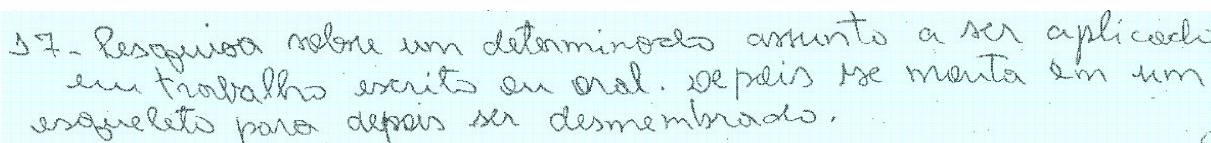 17- Pesquisa sobre um determinado assunto a ser aplicado
em trabalho escrito ou oral. Depois se monta em um
esqueleto para depois ser desmembrado.